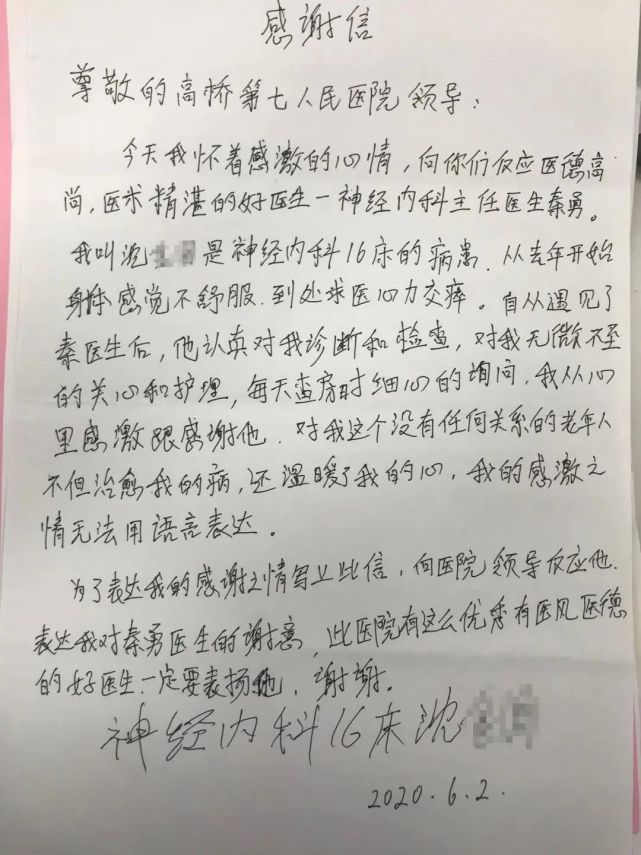 感谢信
尊敬的高桥第七人民医院领导:
今天我怀着感激的心情,向你们反应医德高
尚,医术精湛的好医生一神经内科主任医生秦勇。
我叫沈 是神经内科16床的病患.从去年开始
身体感觉不舒服.到处求医心力交瘁。自从遇见了
秦医生后,他认真对我诊断和检查,对我无微不至
的关心和护理,每天查房时细心的询问,我从心
里感激跟感谢他.对我这个没有任何关系的老年人
不但治愈我的病,还温暖了我的心,我的感激之
情无法用语言表达。
为了表达我的感谢之情写上此信,向医院领导反应他.
表达我对秦勇医生的谢意,此医院有这么优秀有医风医德
的好医生一定要表扬他,谢谢。
神经内科16床沈
2020.6.2.